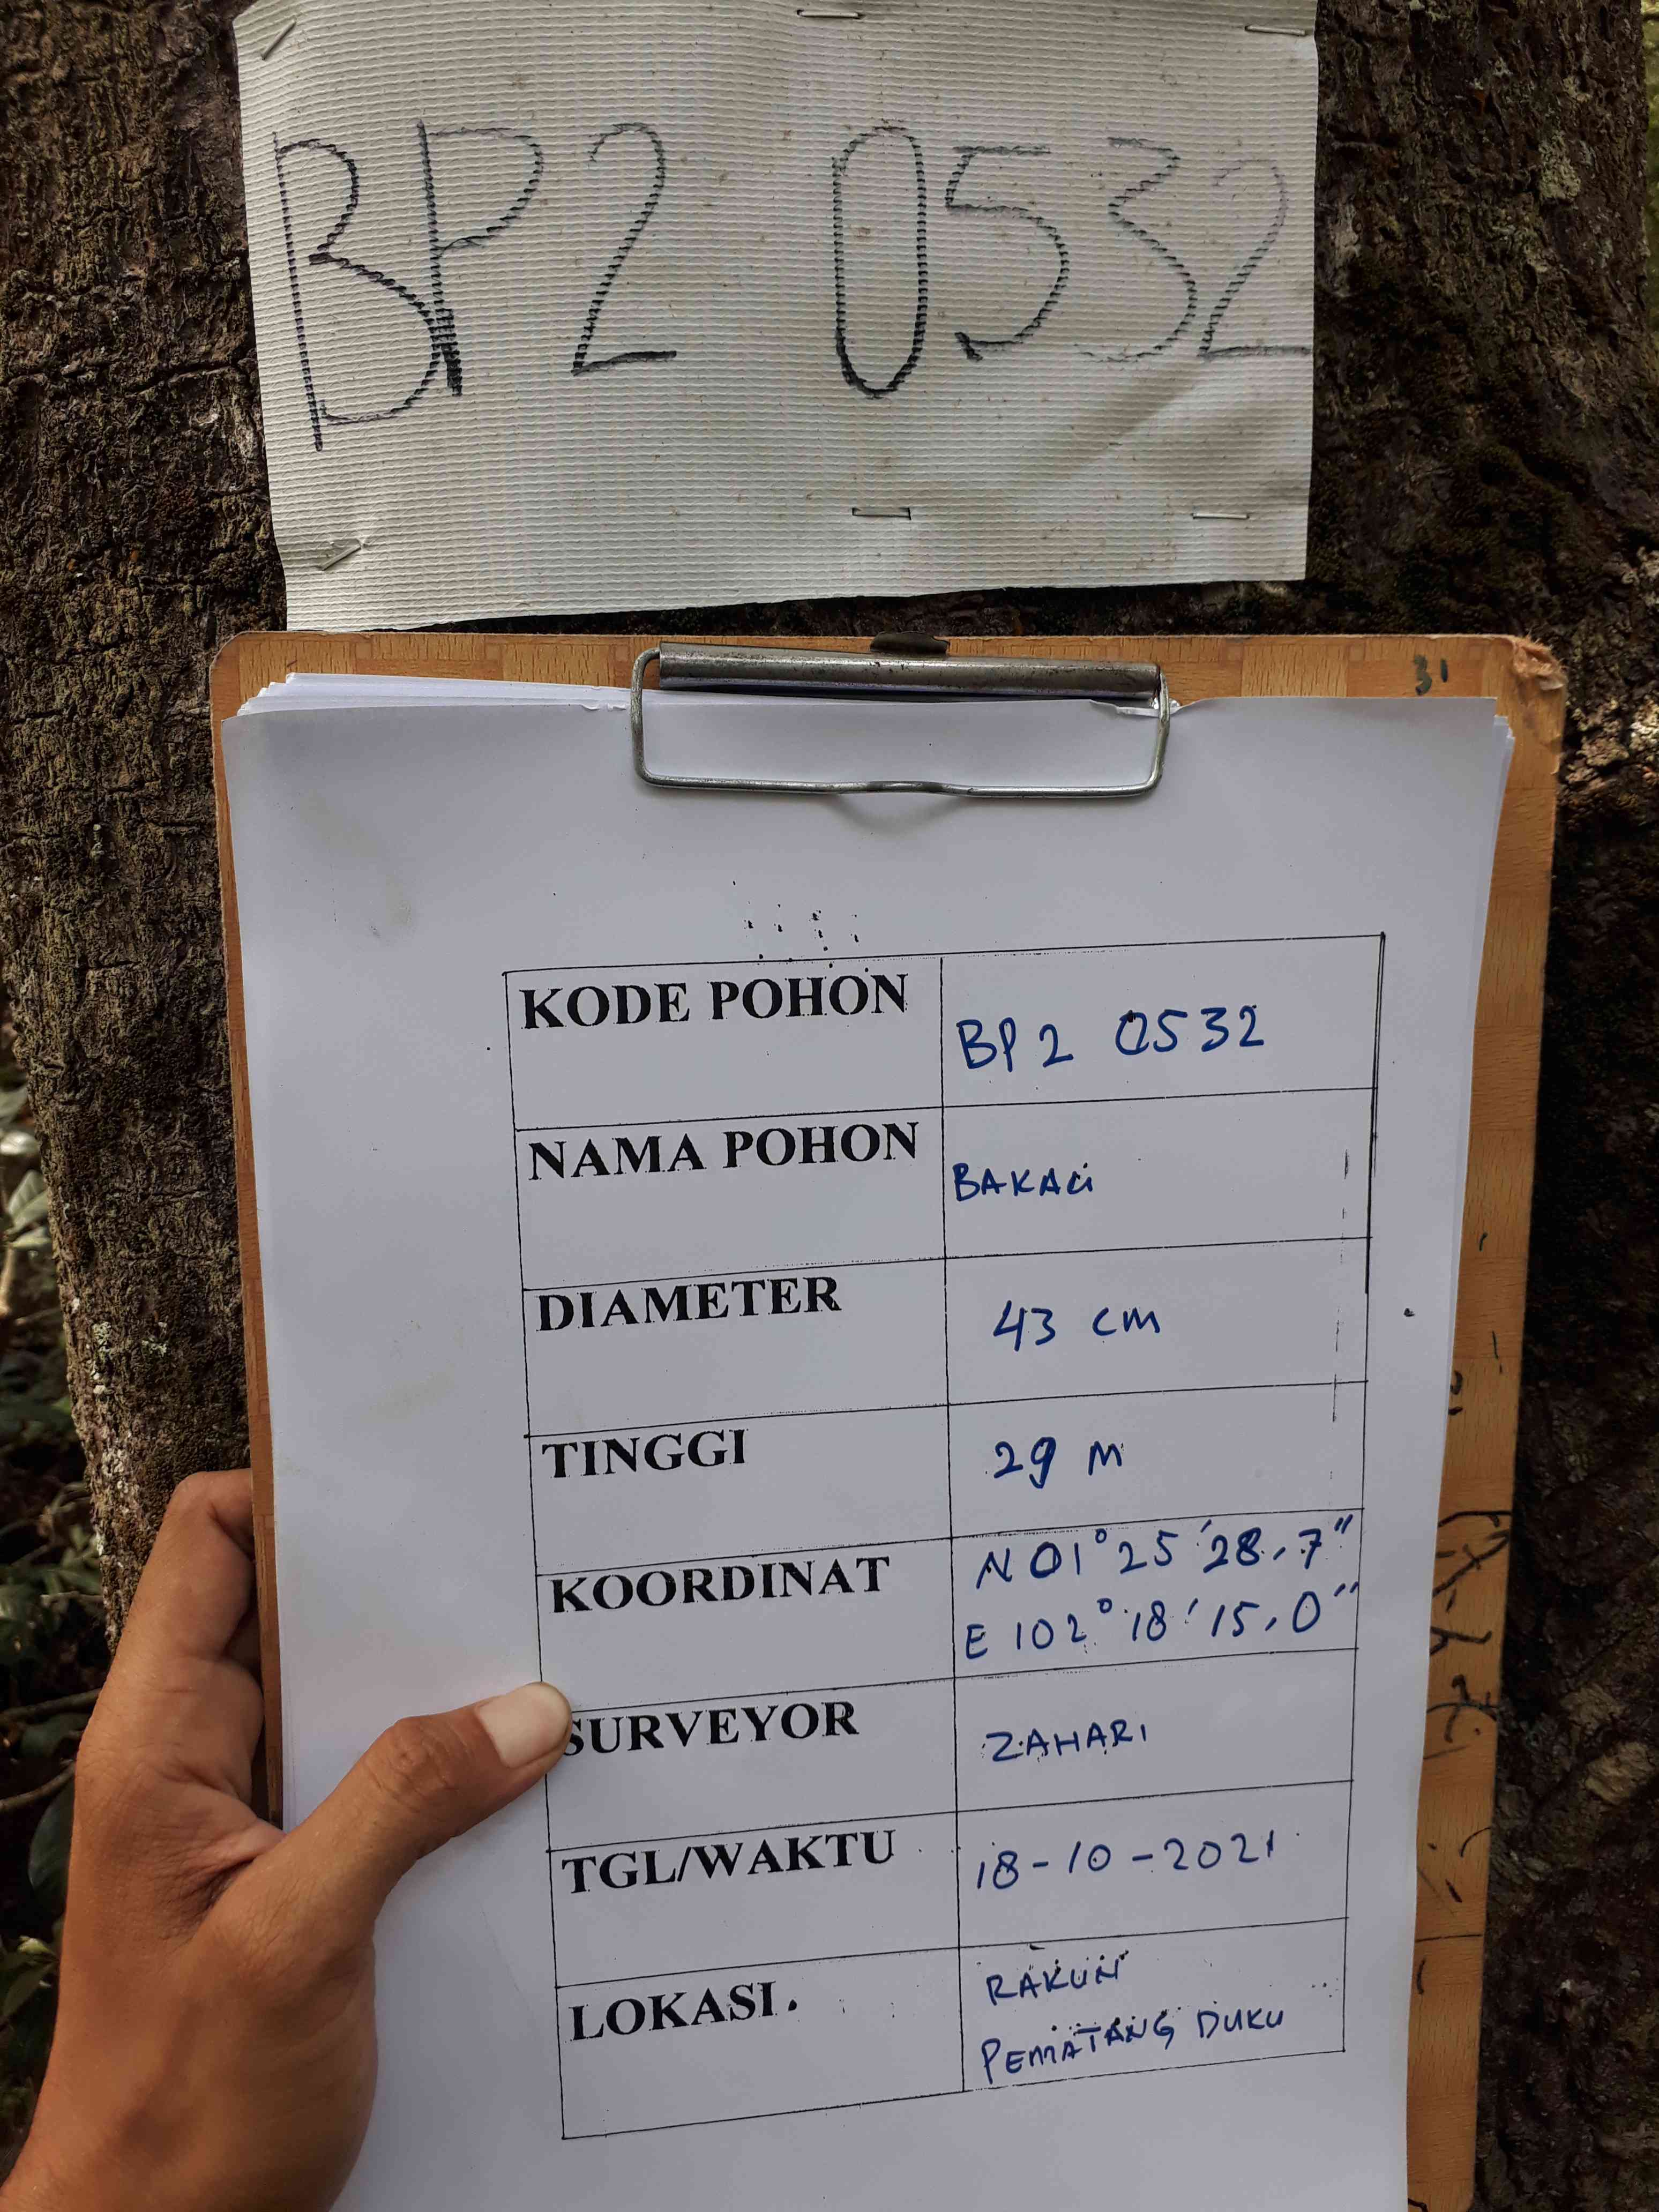 BP2 0532
KODE POHON BP2 0532
NAMA POHON
DIAMETER 43 cm
TINGGI 29 M
KOORDINAT N 01° 25 ' 28,7"
E 102° 18 ' 15,0"
SURVEYOR ZAHARI
TGL/WAKTU 18-10-2021
LOKASI. RAKUN
PEMATANG DUKU